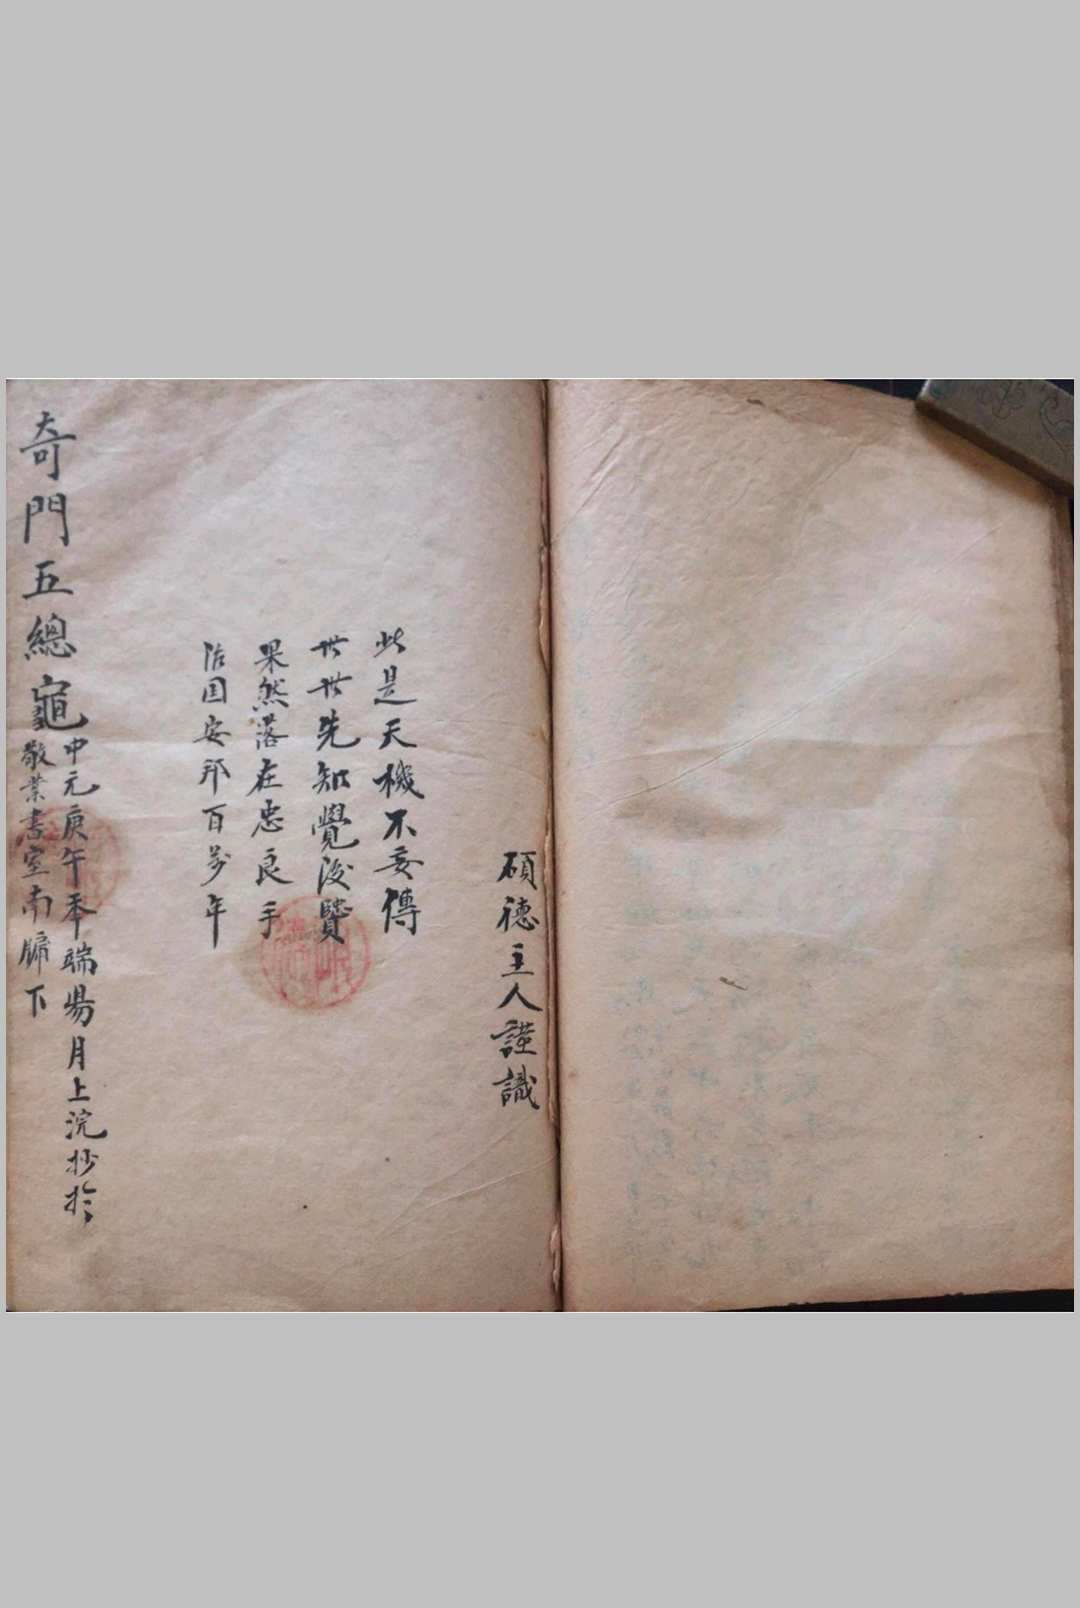 碩德主人謹識
此是天機不妄傳
世世先知覺後賢
果然落在忠良手
治国安邦百岁年
奇門五總龜
中元庚午奉端陽月上浣抄於
敬業書室南牖下